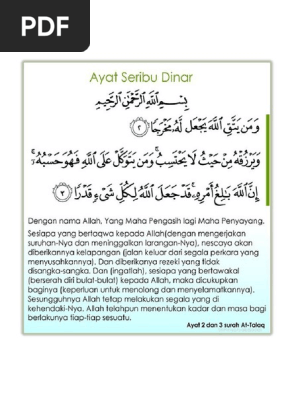 PDF
Ayat Seribu Dinar
بِسْمِ اللَّهِ الرَّحْمَٰنِ الرَّحِيمِ
وَمَن يَتَّقِ اللَّهَ يَجْعَل لَّهُ مَخْرَجًا ﴿٢﴾
وَيَرْزُقْهُ مِنْ حَيْثُ لَا يَحْتَسِبُ ۚ وَمَن يَتَوَكَّلْ عَلَى اللَّهِ فَهُوَ حَسْبُهُ ۚ
إِنَّ اللَّهَ بَالِغُ أَمْرِهِ ۚ قَدْ جَعَلَ اللَّهُ لِكُلِّ شَيْءٍ قَدْرًا ﴿٣﴾
Dengan nama Allah, Yang Maha Pengasih lagi Maha Penyayang.
Sesiapa yang bertaqwa kepada Allah(dengan mengerjakan
suruhan-Nya dan meninggalkan larangan-Nya), nescaya akan
diberikannya kelapangan (jalan keluar dari segala perkara yang
menyusahkannya). Dan diberikanya rezeki yang tidak
disangka-sangka. Dan (ingatlah), sesiapa yang bertawakal
(berserah diri bulat-bulat) kepada Allah, maka dicukupkan
baginya (keperluan untuk menolong dan menyelamatkannya).
Sesungguhnya Allah tetap melakukan segala yang di
kehendaki-Nya. Allah telahpun menentukan kadar dan masa bagi
berlakunya tiap-tiap sesuatu.
Ayat 2 dan 3 surah At-Talaq